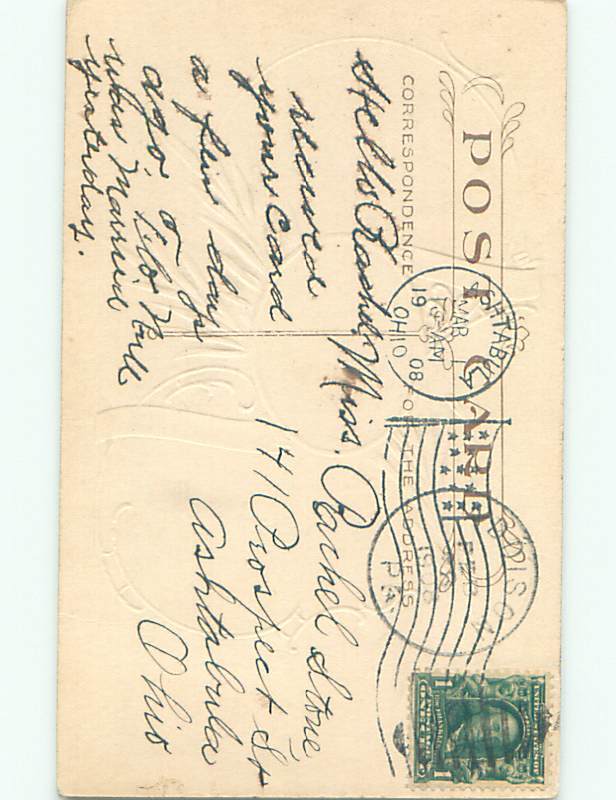 POST CARD
CORRESPONDENCE
FOR THE ADDRESS
ASHTABULA
MAR
AM
19 08
OHIO
EDISON
1908
PA
Hello Rachel,
recived
your card
a few days
ago &
was married
yesterday.
Miss. Rachel Stone
141 Prospect St
Ashtabula
Ohio
1
1